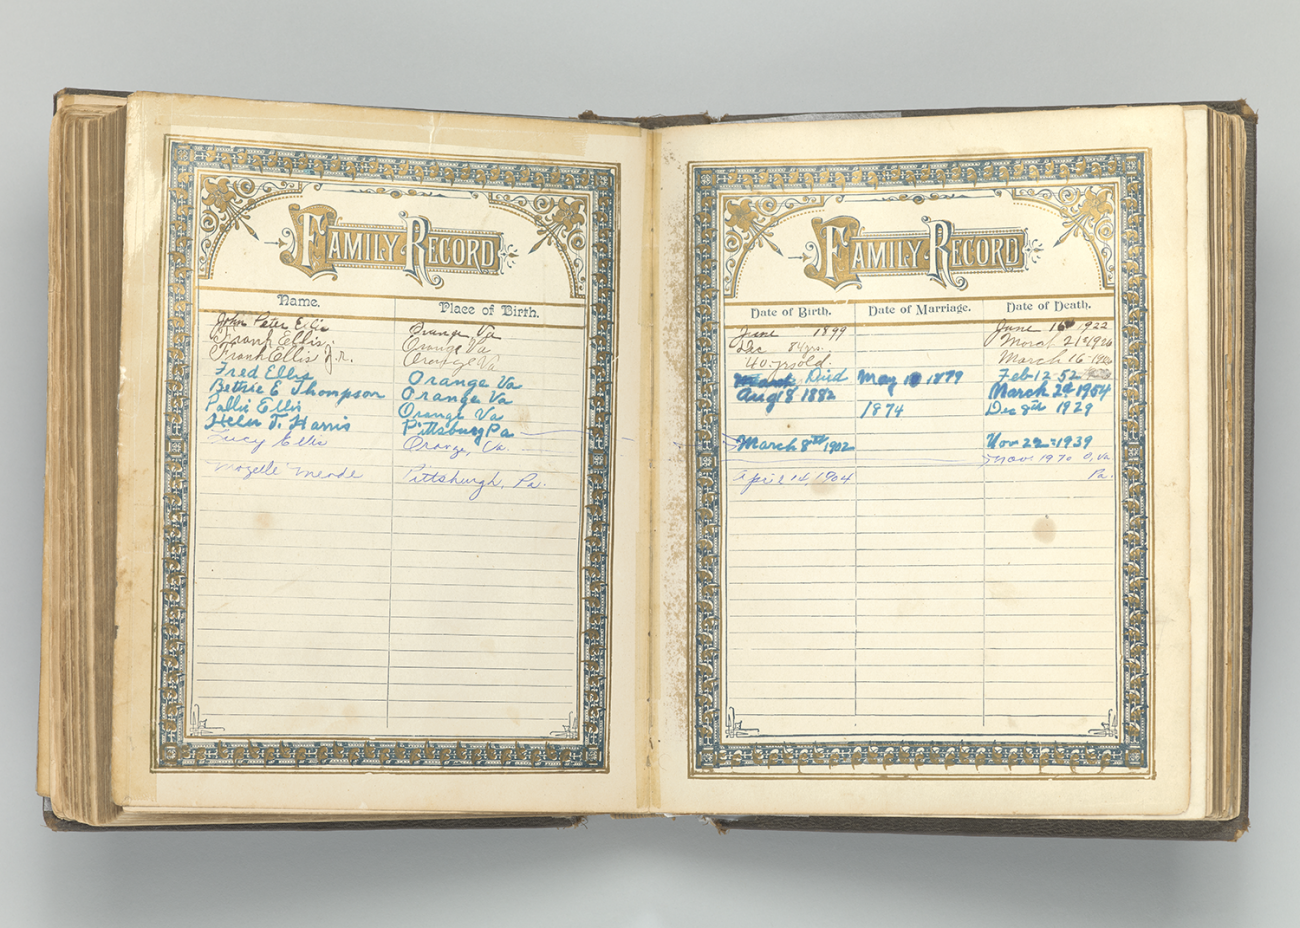 FAMILY RECORD
Name. Place of Birth.
John Peter Ellis Orange Va
Frank Ellis. Orange Va
Frank Ellis J.R. Orange Va
Fred Ellis Orange Va
Bettie E Thompson Orange Va
Pallie Ellis Orange Va
Helen T. Harris Pittsburg Pa
Lucy Ellis Orange, Va.
Mozelle Meade Pittsburgh, Pa.
FAMILY RECORD
Date of Birth. Date of Marriage. Date of Death.
June 1899 June 16 1922
Dec 84 yrs. March 21st 1926
40 yrs old. March 16
March Died May 1879 Feb 12 52
Aug 18 1882 March 1954
1874 Dec 8th 1929
March 8th 1902 Nov 22 1939
Nov 1970 O, Va
April 14, 1904 Pa.